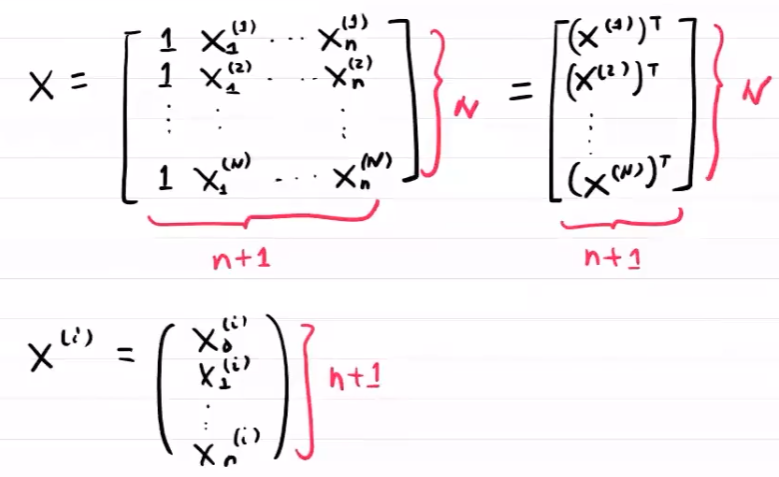 X = [ 1 X₁⁽¹⁾ ··· Xₙ⁽¹⁾ ; 1 X₁⁽²⁾ ··· Xₙ⁽²⁾ ; ⋮ ⋮ ⋮ ; 1 X₁⁽ᴺ⁾ ··· Xₙ⁽ᴺ⁾ ] } N = [ (X⁽¹⁾)ᵀ ; (X⁽²⁾)ᵀ ; ⋮ ; (X⁽ᴺ⁾)ᵀ ] } N
n+1 n+1
X⁽ⁱ⁾ = ( X₀⁽ⁱ⁾ ; X₁⁽ⁱ⁾ ; ⋮ ; Xₙ⁽ⁱ⁾ ) } n+1